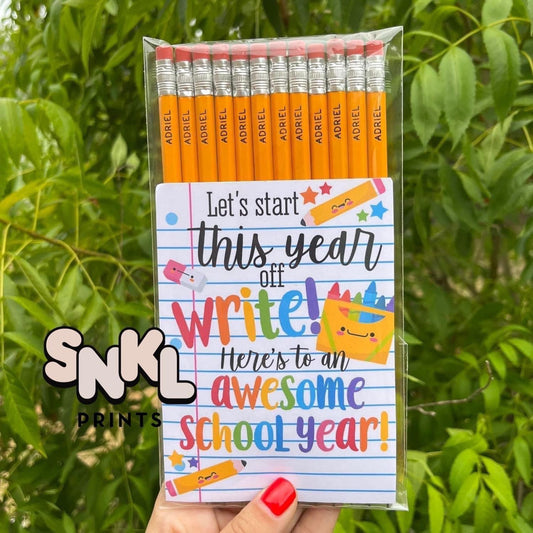 ADRIEL
ADRIEL
ADRIEL
ADRIEL
ADRIEL
ADRIEL
ADRIEL
ADRIEL
ADRIEL
ADRIEL
ADRIEL
ADRIEL
Let's start
this year
off
write!
Here's to an
awesome
school year!
SNKL
PRINTS